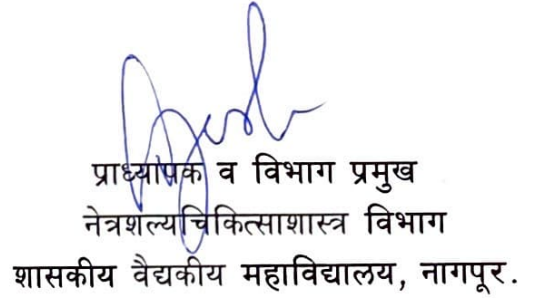 प्राध्यापक व विभाग प्रमुख
नेत्रशल्यचिकित्साशास्त्र विभाग
शासकीय वैद्यकीय महाविद्यालय, नागपूर.